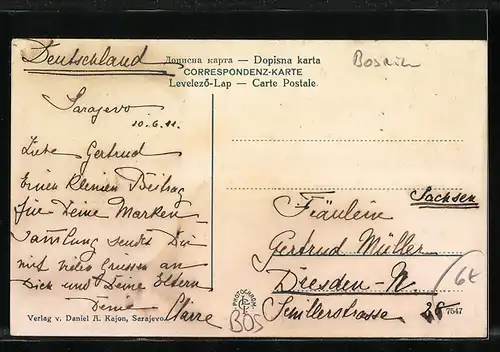 Deutschland
Дописна карта — Dopisna karta
CORRESPONDENZ-KARTE
Levelező-Lap — Carte Postale
Bosnien
Sarajevo
10.6.11.
Liebe Gertrud
Einen kleinen Beitrag
für Deine Marken
Samlung sendet Dir
mit vielen Grüssen an
Dich und Deine Eltern
Deine Cläire
Sachsen
Fräulein
Gertrud Müller
Dresden-N.
Schillerstrasse 28
6x
PHOTOCHROM
BOS
Verlag v. Daniel A. Kajon, Sarajevo.
7547